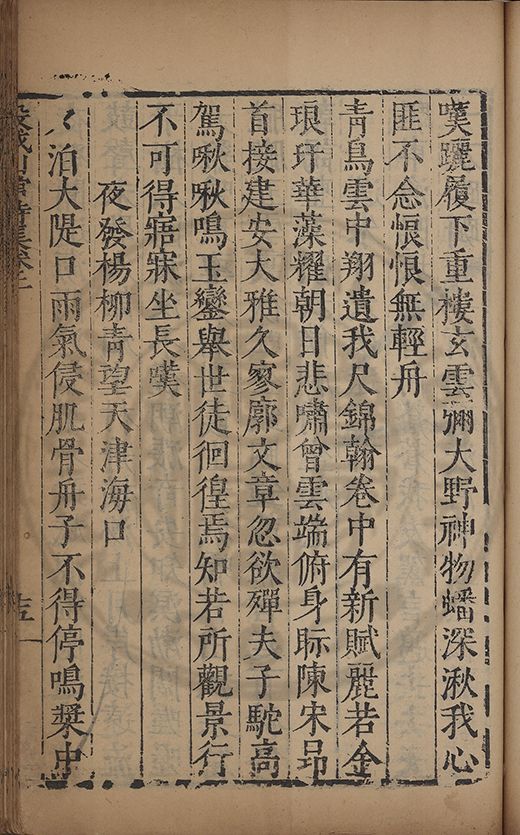 嘆躧履下重棲玄雲彌大野神物蟠深湫我心
匪不念悵恨無輕舟
青鳥雲中翔遺我尺錦翰卷中有新賦麗若金
琅玕華藻耀朝日悲嘯曾雲端俯身眎陳宋昂
首接建安大雅久寥廓文章忽欲殫夫子駝高
駕啾啾鳴玉鑾舉世徒徊徨焉知若所觀景行
不可得寤寐坐長嘆
夜發楊柳青望天津海口
夕泊大隄口雨氣侵肌骨舟子不得停鳴槳中